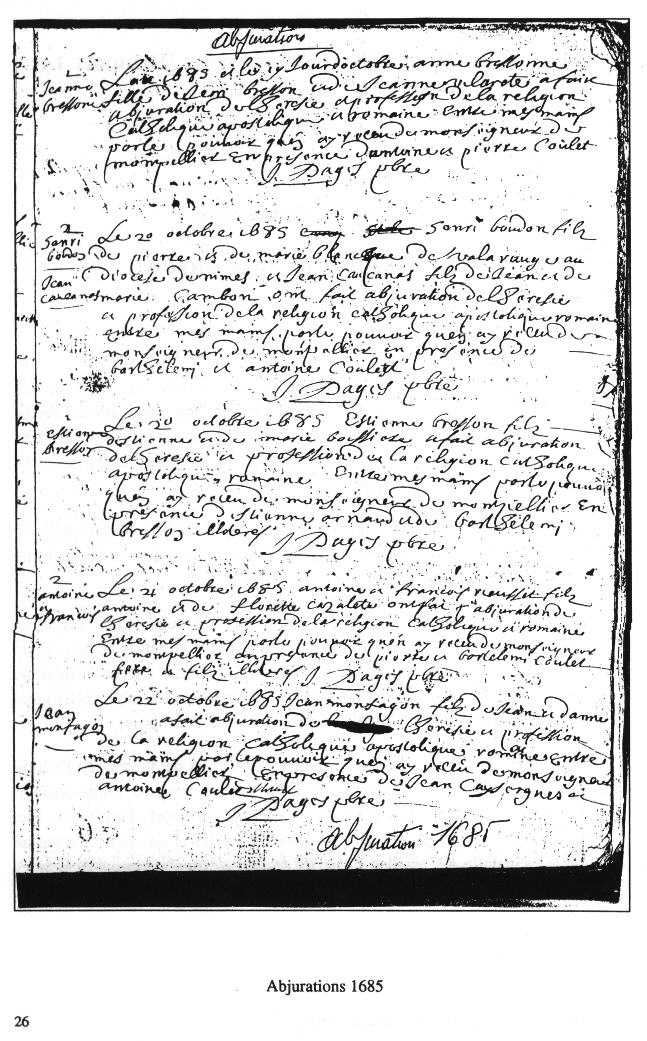 Abjuration
Jeanne
bressone
Lan 1685 et le 19 Jour doctobre anne bressonne
fille de Jean bresson et de Jeanne valarote a fait
abjuration de lheresie a profession de la religion
Catholique apostolique et romaine Entre mes mains
par le pouvoir quen ay receu de monseigneur de
montpellier En presence dantoine et pierre Coulet
J Pagis pbre
2
honri
boudon
Jean
caucanas
Le 20 octobre 1685 honri boudon filz
de pierre et de marie blancque de valaraugue au
diocese de nimes et Jean Caucanas filz de Jean et de
marie Cambon ont fait abjuration de lheresie
et profession de la religion catholique apostolique romaine
entre mes mains par le pouvoir quen ay receu de
monseigneur de montpellier en presence de
barthelemi et antoine Coulet
J Pagis pbre
estienne
bresson
Le 20 octobre 1685 Estienne bresson filz
destienne et de marie a fait abjuration
de lheresie et profession de la religion Catholique
apostolique romaine Entre mes mains par le pouvoir
quen ay receu de monseigneur de montpellier En
presence destienne arnaud et de barthelemi
bresson illderes
J Pagis pbre
2
antoine
et francois
Le 21 octobre 1685 antoine et francois filz
antoine et de florette cazalote ont fait abjuration de
lheresie et profession de la religion Catholique et romaine
Entre mes mains par le pouvoir quen ay receu de monseigneur
de montpellier en presence de pierre et bartelemi Coulet
pere et filz illderes J Pagis pbre
Jean
monfagon
Le 22 octobre 1685 Jean monfagon filz de Jean et danne
a fait abjuration de lheresie et profession
de la religion Catholique apostolique romaine Entre
mes mains par le pouvoir quen ay receu de monseigneur
de montpellier En presence de Jean et
antoine Coulet
J Pagis pbre
Abjuration 1685
Abjurations 1685
26